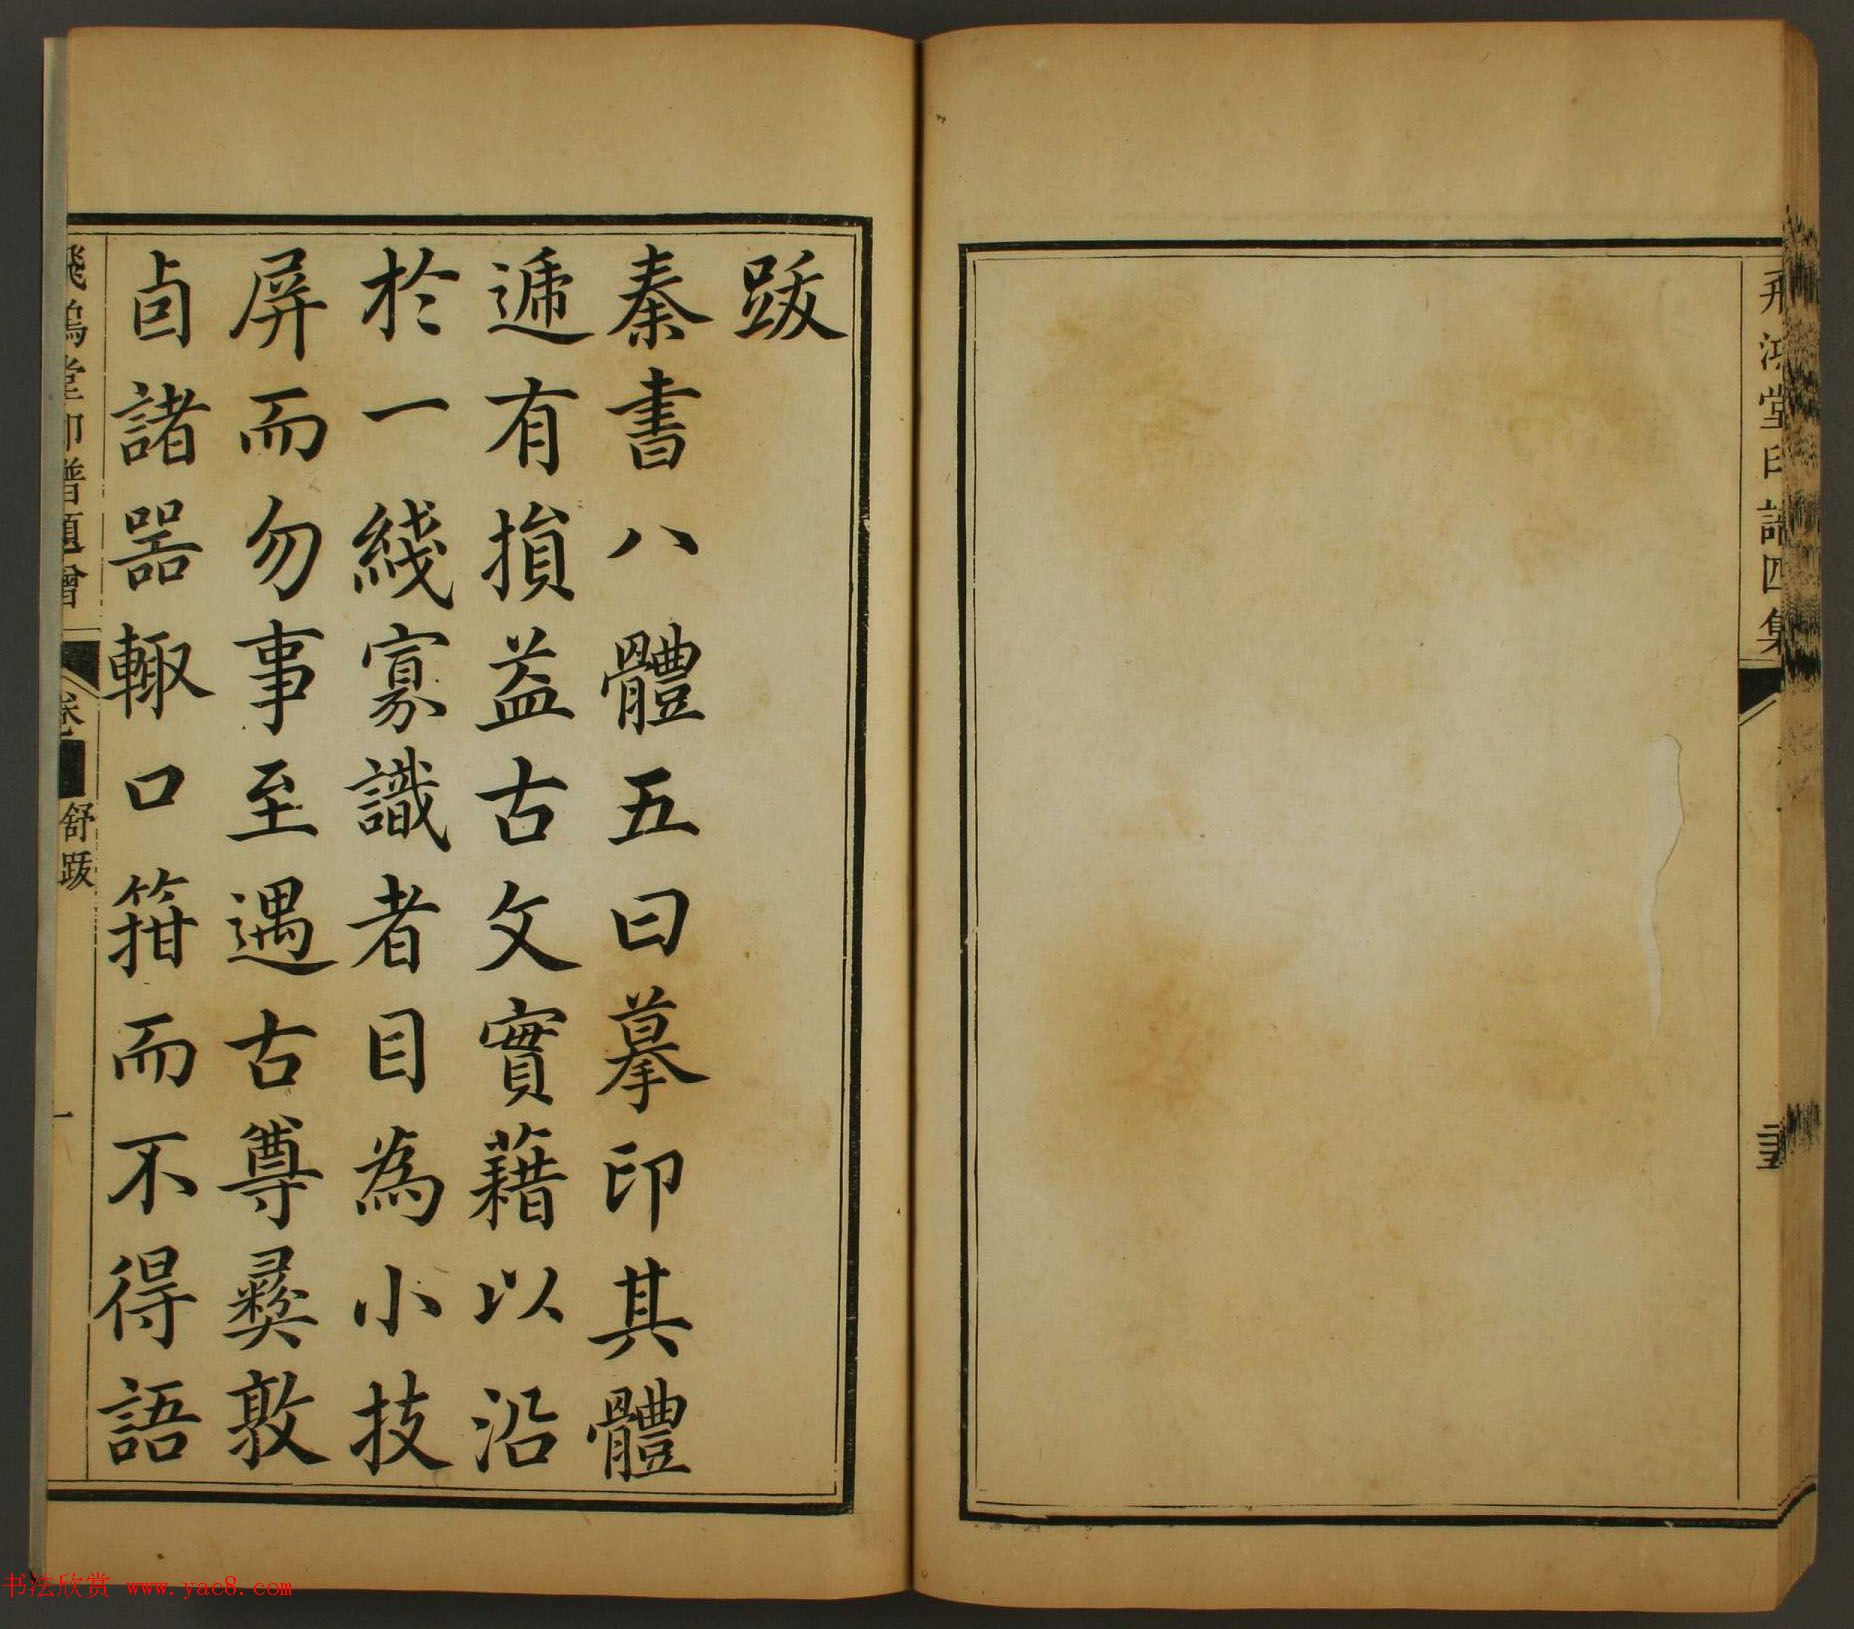 飛鴻堂印譜四集
跋
秦書八體五曰摹印其體
遞有損益古文實藉以沿
於一綫寡識者目為小技
屏而勿事至遇古尊彝敦
卣諸噐輙口箝而不得語
舒跋
一
书法欣赏 www.yac8.com